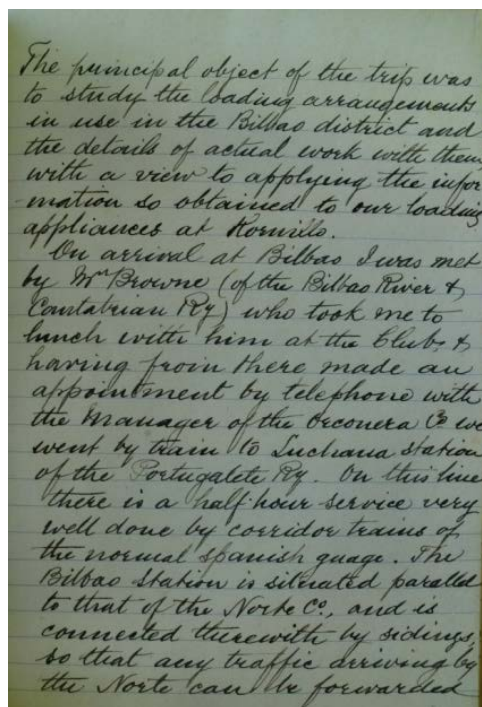 The principal object of the trip was
to study the loading arrangements
in use in the Bilbao district and
the details of actual work with them
with a view to applying the infor
-mation so obtained to our loading
appliances at
On arrival at Bilbao I was met
by Mr Browne (of the Bilbao River &
Cantabrian Ry) who took me to
lunch with him at the Club, &
having from there made an
appointment by telephone with
the Manager of the Orconera Co we
went by train to Luchana station
of the Portugalete Ry. On this line
there is a half-hour service very
well done by corridor trains of
the normal spanish guage. The
Bilbao station is situated parallel
to that of the Norte Co, and is
connected therewith by sidings,
so that any traffic arriving by
the Norte can be forwarded